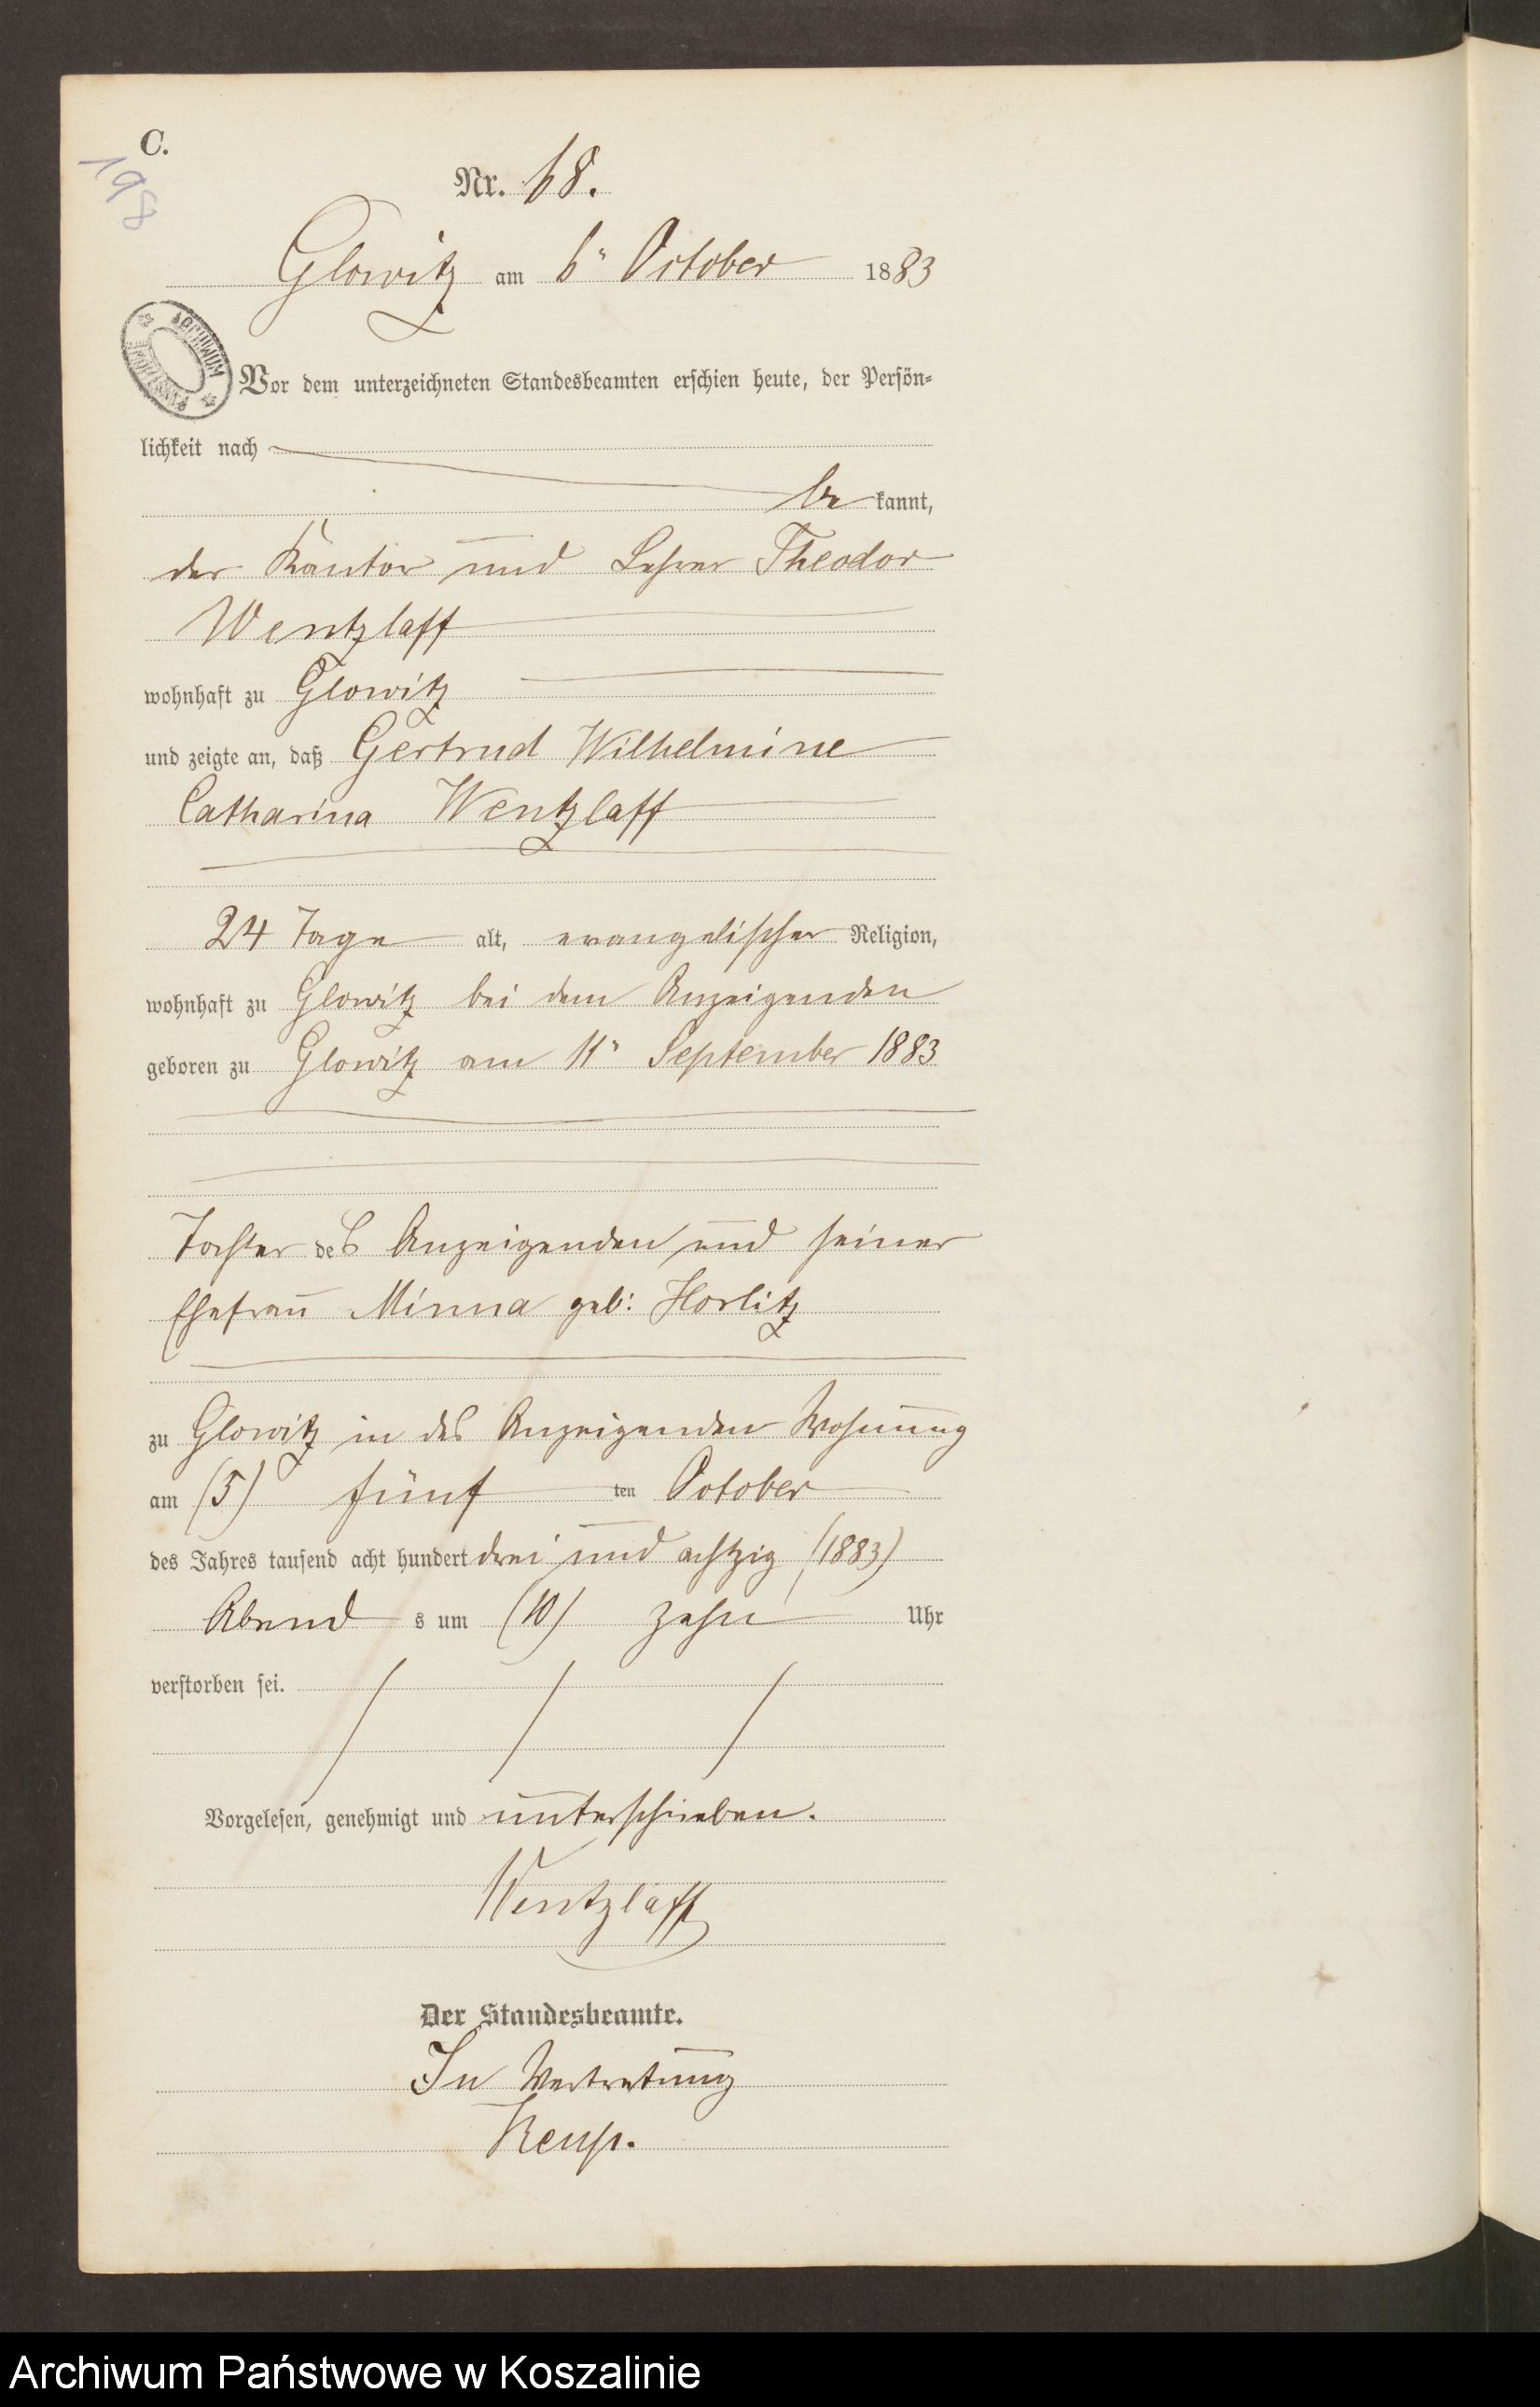 C.
198
Nr. 68.
Glowitz am 6" October 1883
ARCHIWUM PAŃSTWOWE
Vor dem unterzeichneten Standesbeamten erschien heute, der Persön-
lichkeit nach
be kannt,
der Kantor und Lehrer Theodor
Wentzlaff
wohnhaft zu Glowitz
und zeigte an, daß Gertrud Wilhelmine
Catharina Wentzlaff
24 Tage alt, evangelischer Religion,
wohnhaft zu Glowitz bei dem Anzeigenden
geboren zu Glowitz am 11" September 1883
Tochter des Anzeigenden und seiner
Ehefrau Minna geb: Horlitz
zu Glowitz in des Anzeigenden Wohnung
am (5) fünf ten October
des Jahres tausend acht hundert drei und achtzig (1883)
Abend s um (10) zehn Uhr
verstorben sei.
Vorgelesen, genehmigt und unterschrieben.
Wentzlaff
Der Standesbeamte.
In Vertretung
Archiwum Państwowe w Koszalinie